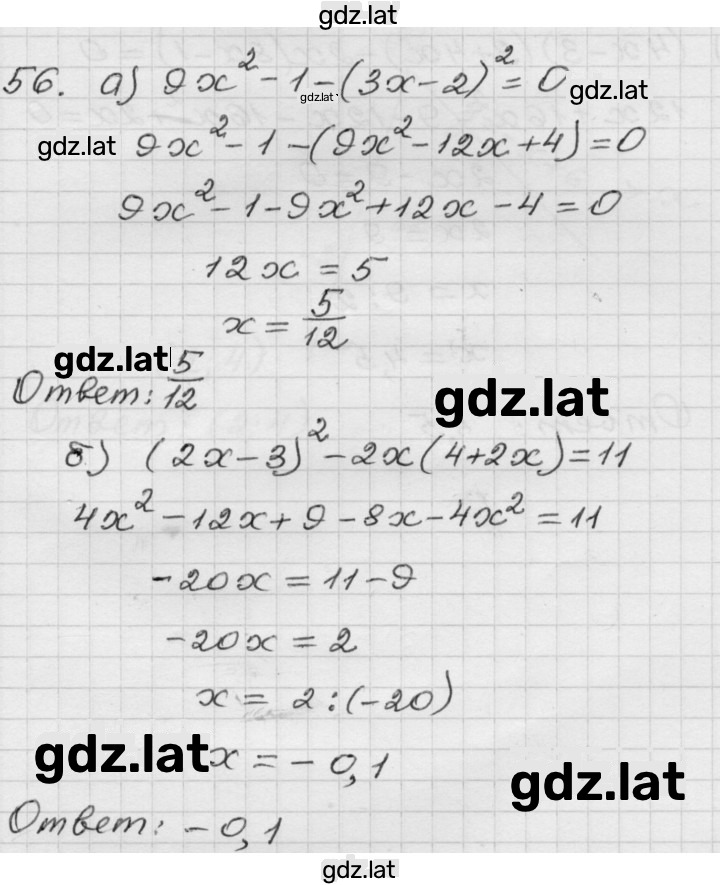 gdz.lat
56. а) 9x² - 1 - (3x - 2)² = 0
gdz.lat
gdz.lat
gdz.lat
9x² - 1 - (9x² - 12x + 4) = 0
9x² - 1 - 9x² + 12x - 4 = 0
12x = 5
x = 5/12
gdz.lat
Ответ: 5/12
gdz.lat
б) (2x - 3)² - 2x(4 + 2x) = 11
4x² - 12x + 9 - 8x - 4x² = 11
-20x = 11 - 9
-20x = 2
x = 2 : (-20)
gdz.lat
x = - 0,1
gdz.lat
Ответ: - 0,1
gdz.lat